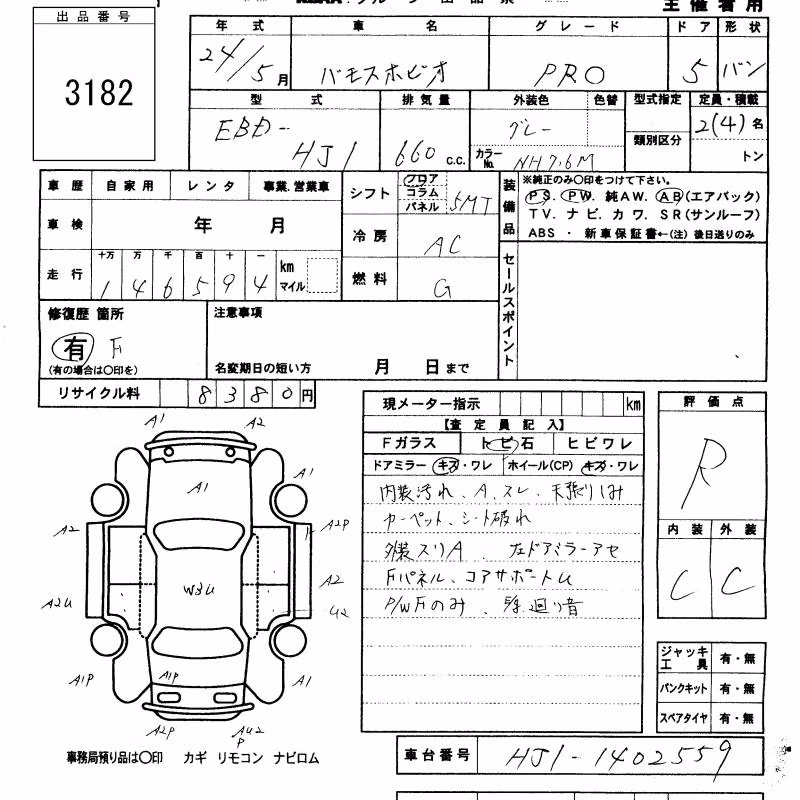 主催者用
出品番号
3182
年式 車名 グレード ドア 形状
24/5月 バモスホビオ PRO 5 バン
型式 排気量 外装色 色替 型式指定 定員・積載
EBD- HJ1 660 c.c. グレー 2(4)名
カラーNo. NH7.6M 類別区分 トン
車歴 自家用 レンタ 事業.営業車
車検 年 月
走行 十万 万 千 百 十 一
146594 km マイル
シフト フロア コラム パネル 5MT
冷房 AC
燃料 G
装備品
※純正のみ〇印をつけて下さい。
PS. PW. 純AW. AB(エアバック)
TV. ナビ. カワ. SR(サンルーフ)
ABS ・ 新車保証書←(注) 後日送りのみ
セールスポイント
修復歴 箇所
有 F
(有の場合は〇印を)
注意事項
名変期日の短い方 月 日まで
リサイクル料 8380円
現メーター指示 km
【査定員記入】
Fガラス トビ石 ヒビワレ
ドアミラー キズ・ワレ ホイール(CP) キズ・ワレ
内装汚れ、A、スレ、天張りしみ
カーペット、シート破れ
外装スリA 左ドアミラーアセ
Fパネル、コアサポートU
P/WFのみ、 廻り音
評価点
R
内装 外装
C C
ジャッキ工具 有・無
パンクキット 有・無
スペアタイヤ 有・無
A1 A2
A1 A1
A2 A2P
W3U
A2U A2
U2
A1P A1P A1
A2P AU2
P
事務局預り品は〇印 カギ リモコン ナビロム
車台番号 HJ1-1402559